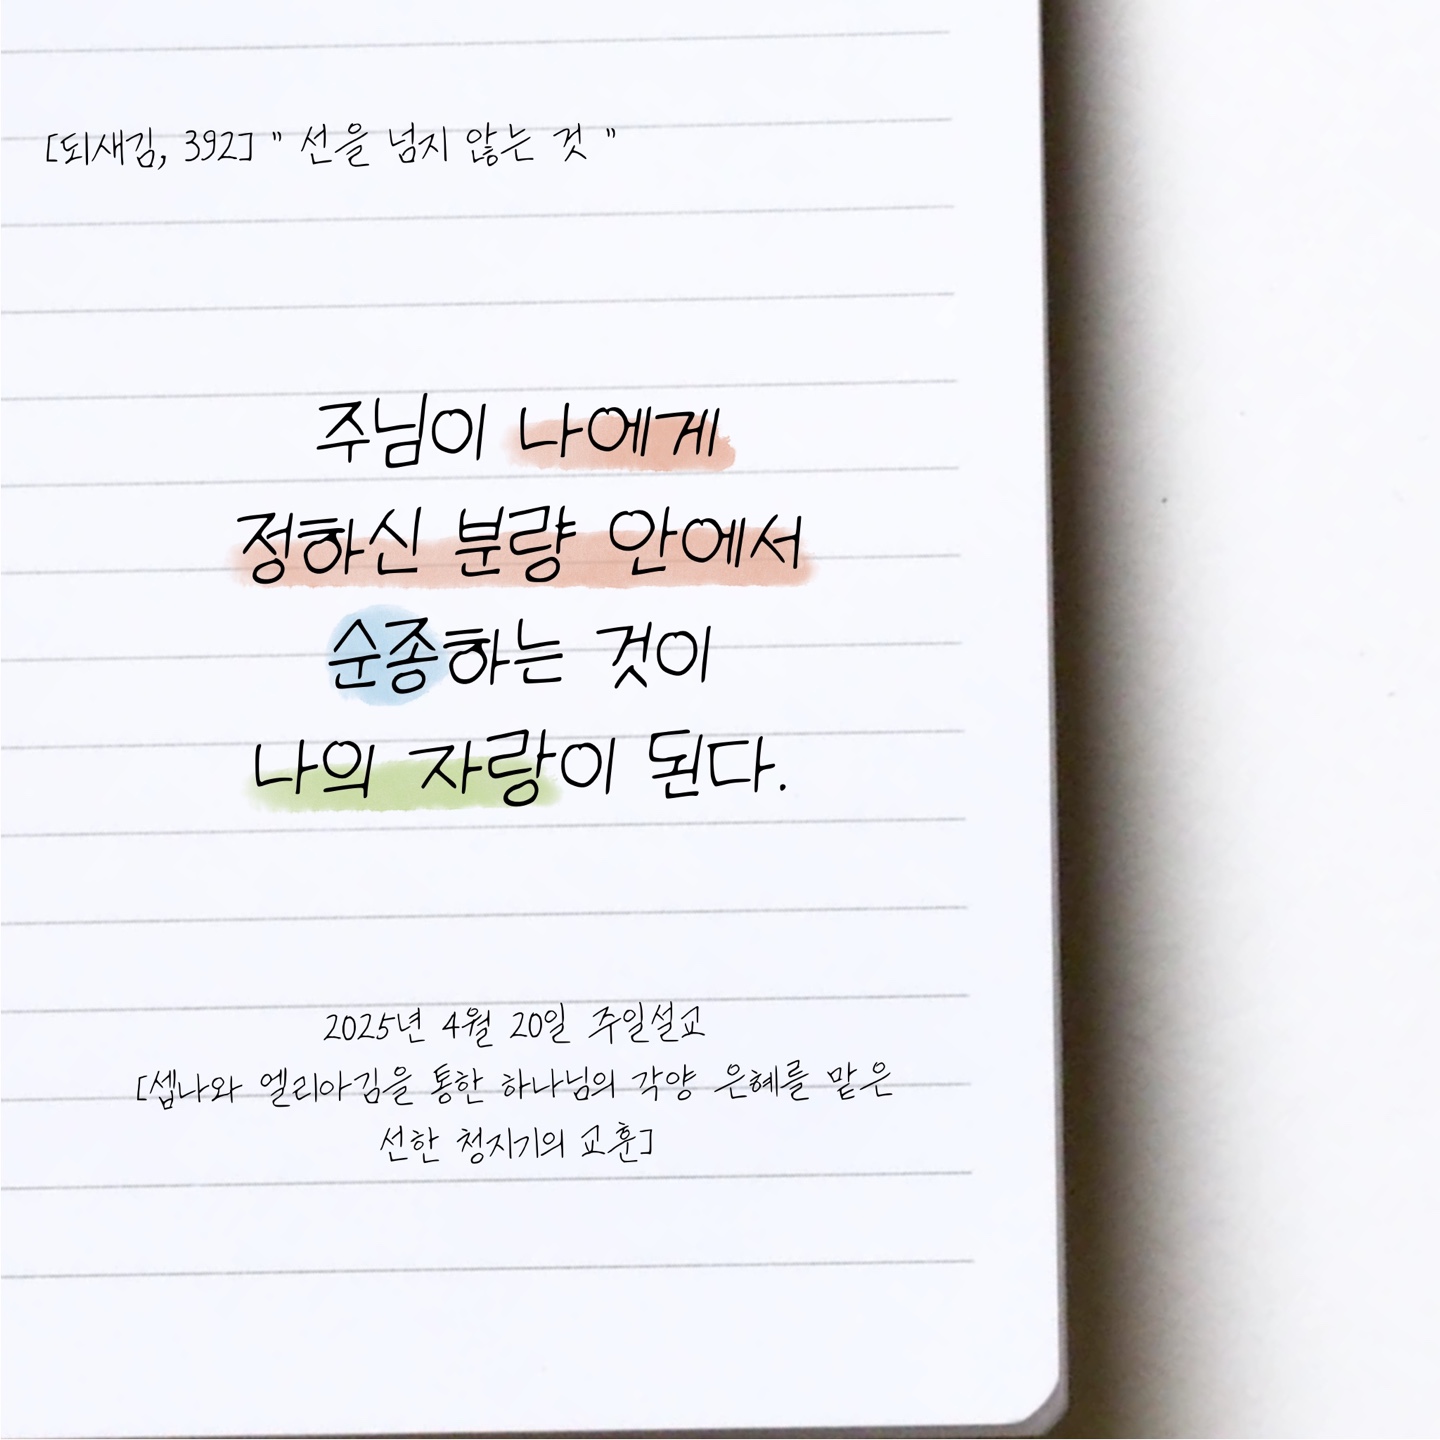 [되새김, 392] " 선을 넘지 않는 것 "
주님이 나에게
정하신 분량 안에서
순종하는 것이
나의 자랑이 된다.
2025년 4월 20일 주일설교
[셉나와 엘리아김을 통한 하나님의 각양 은혜를 맡은
선한 청지기의 교훈]